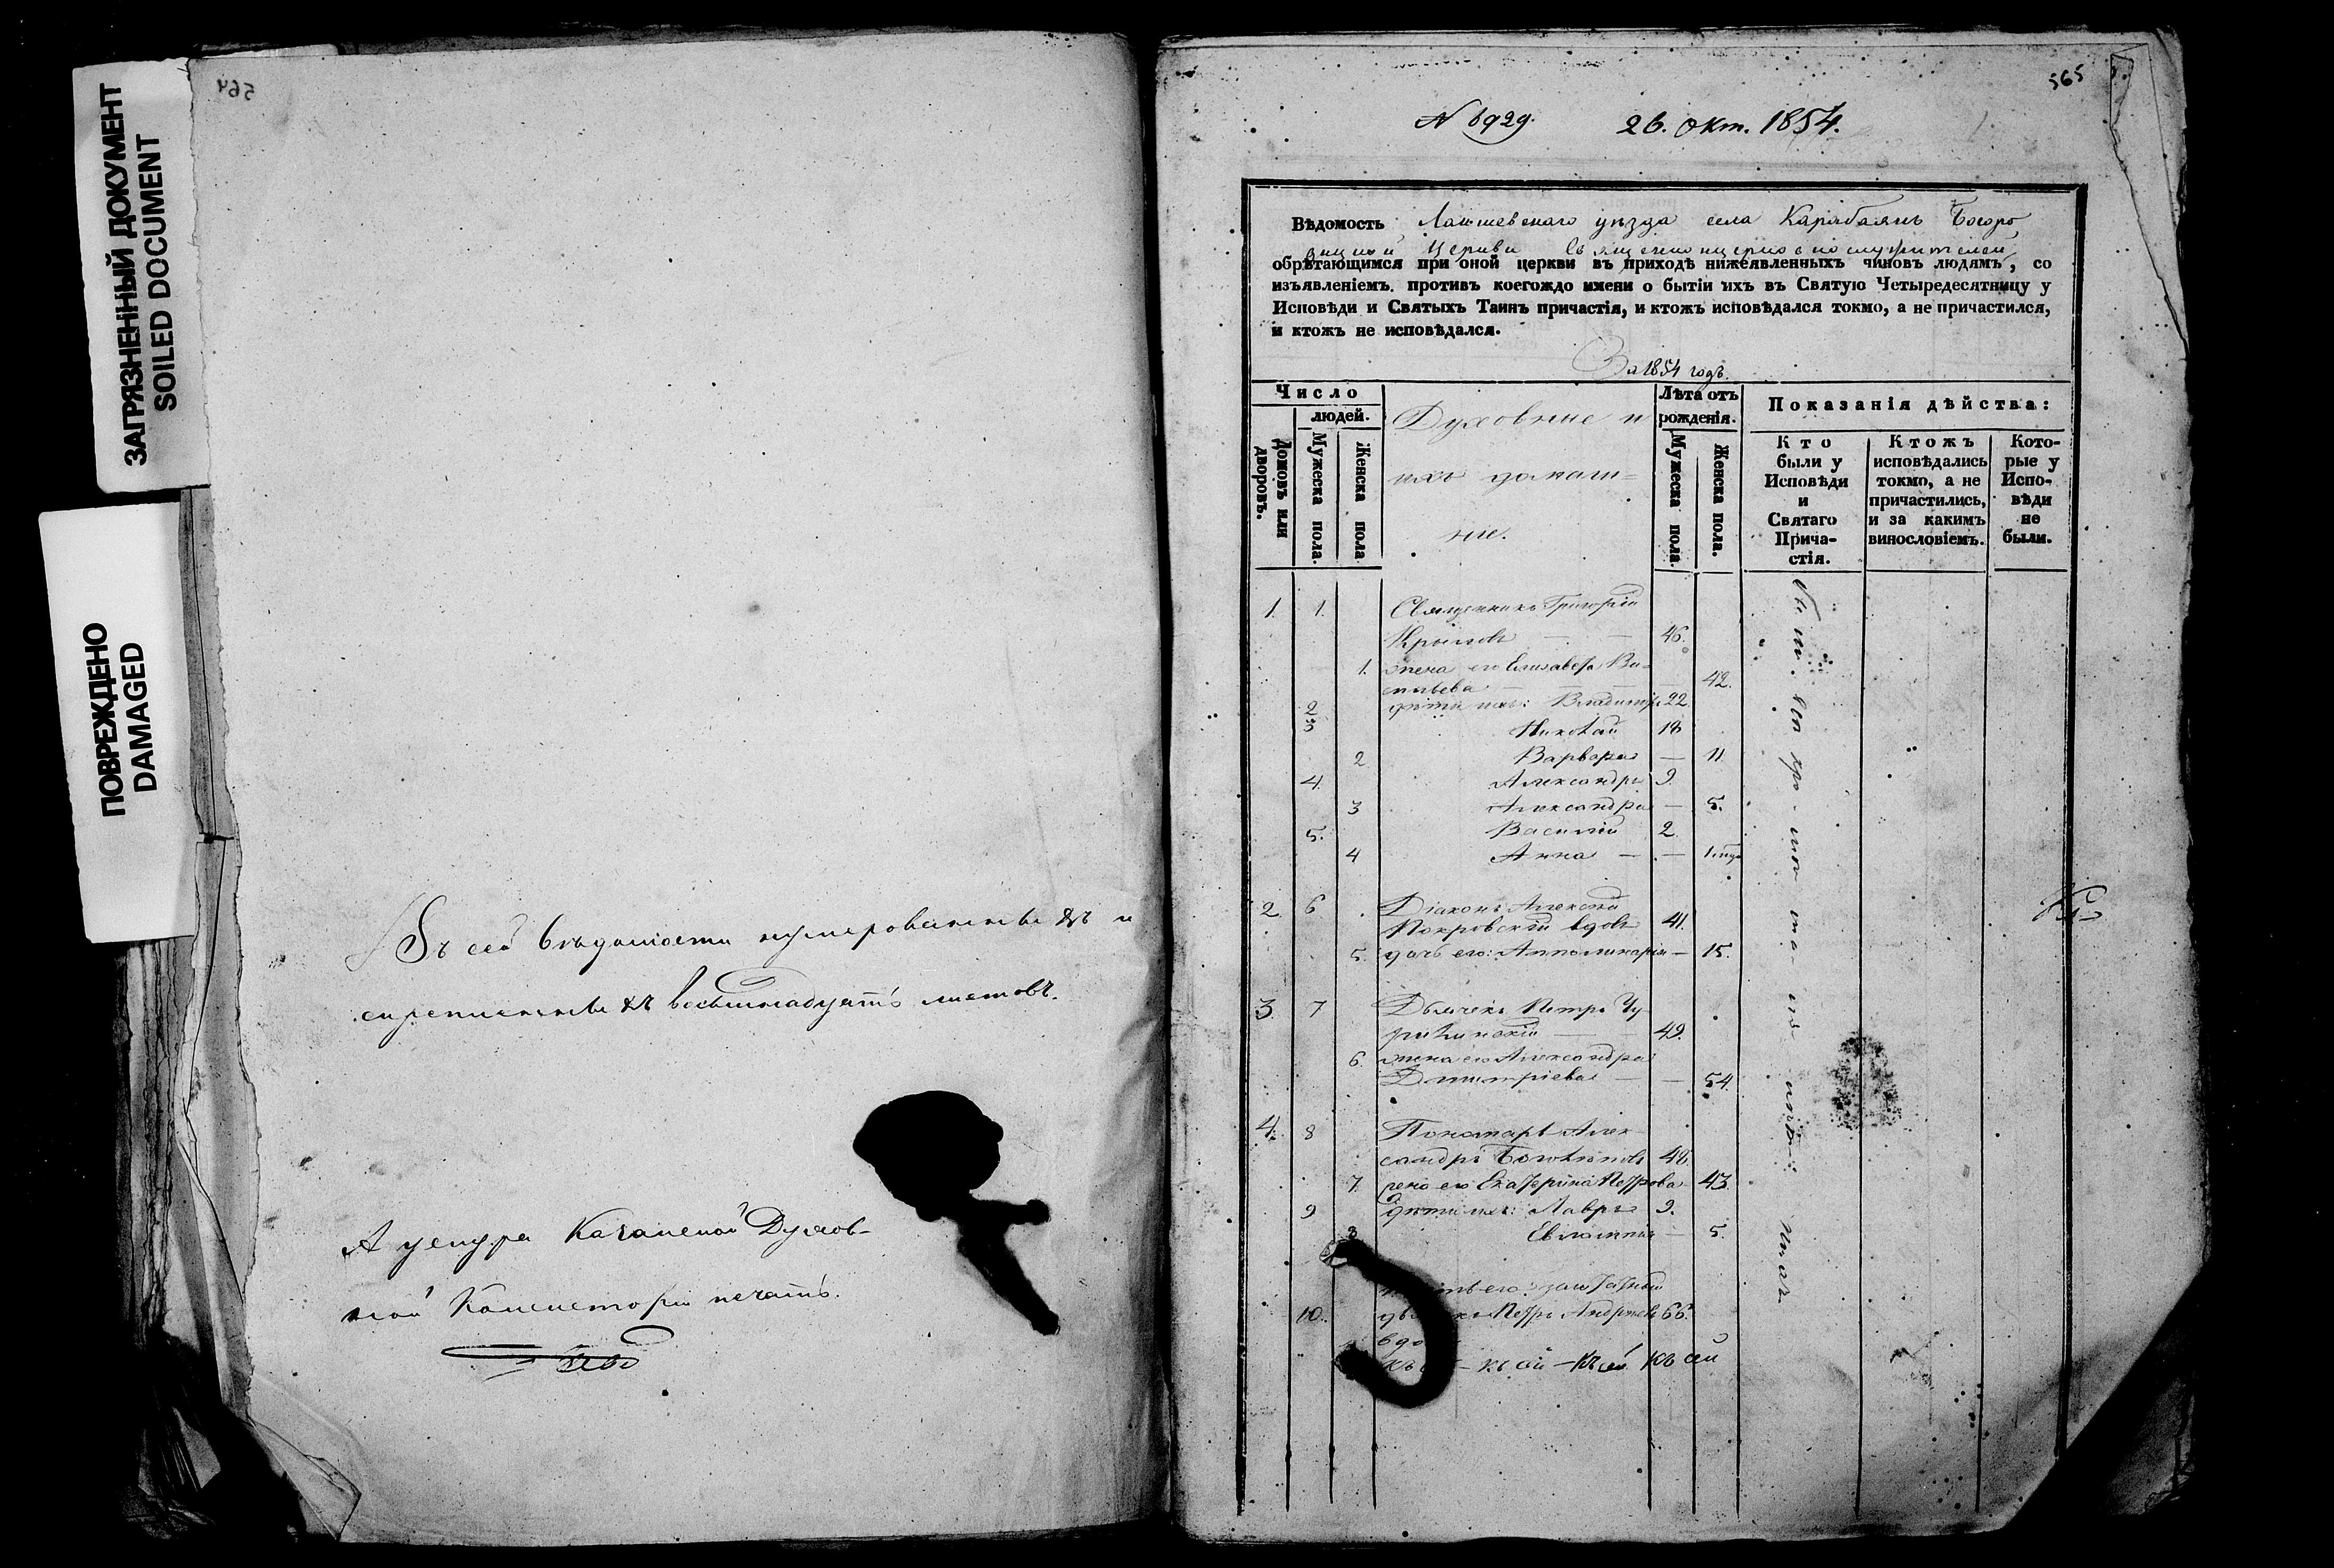 ЗАГРЯЗНЕННЫЙ ДОКУМЕНТ
SOILED DOCUMENT
ПОВРЕЖДЕНО
DAMAGED
564
Въ сей вѣдомости нумерованныхъ и
скрепленныхъ восемнадцать листовъ.
А у шнура Казанской Духов-
ной Консисторіи печать.
565
N 6929. 26. Окт. 1854.
Вѣдомость Лаишевскаго уѣзда села Карабаянъ Богоро
дицкой Церкви Священноцерковнослужителей,
обрѣтающимся при оной церкви въ приходѣ нижеявленныхъ чиновъ людямъ, со
изъявленіемъ противъ коегождо имени о бытіи ихъ въ Святую Четыредесятницу у
Исповѣди и Святыхъ Таинъ причастія, и ктожъ исповѣдался токмо, а не причастился,
и ктожъ не исповѣдался.
За 1854 годъ.
Число
людей.
Домовъ или дворовъ.
Мужеска пола.
Женска пола
Духовные и
ихъ домаш=
ніе.
Лѣта отъ
рожденія.
Мужеска пола
Женска пола.
Показанія дѣйства:
Кто
были у
Исповѣди
и
Святаго
Прича-
стія.
Ктожъ
исповѣдались
токмо, а не
причастились,
и за какимъ
винословіемъ.
Кото-
рые у
Испо-
вѣди
не
были.
1. 1. Священникъ Григорій
Крыловъ — — 46.
1. жена его Елисавета Ва=
сильева — — — 42.
2 дѣти ихъ: Владиміръ 22
3 Николай 18
2 Варвара — 11
4. Александръ 9.
3 Александра — 5.
5. Василій 2.
4 Анна — — 1.
2 6 Діаконъ Алексѣй
Покровскій вдовъ 41.
5. дочь его: Апполинарія — 15.
3. 7 Дьячекъ Петръ
49.
6. жена его Александра
Дмитріева — — 54.
4. 8 Пономарь Алек-
сандръ 48.
7. жена его Екатерина Петрова 43.
9 дѣти ихъ: Лавръ 9.
8 Евлампія — 5.
его: заштатный
10. Петръ Андреевъ 66.